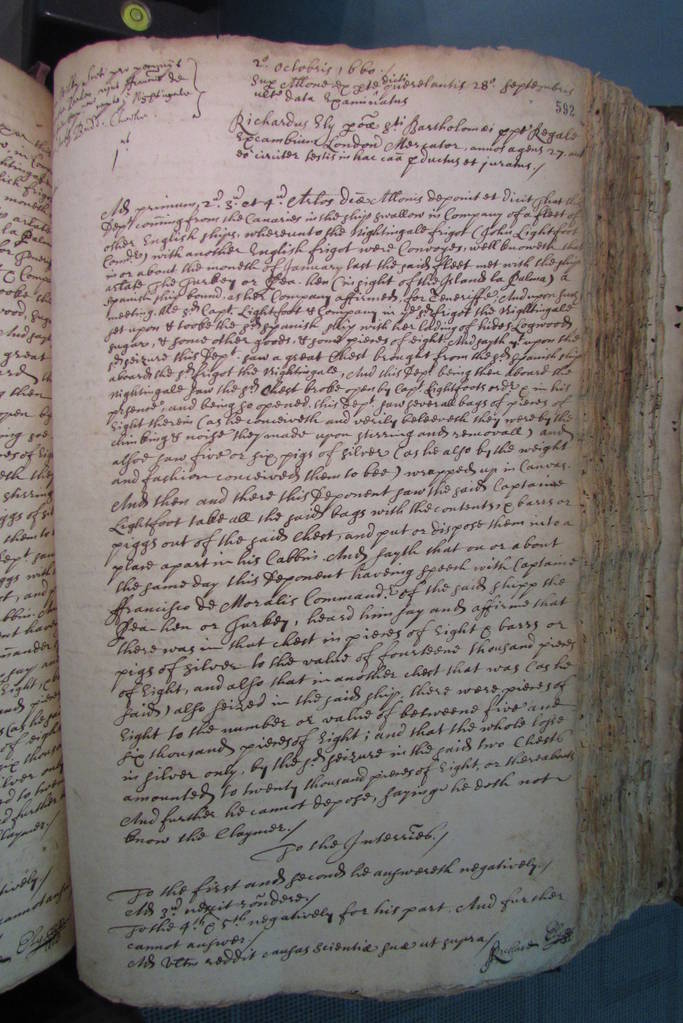 2o. Octobris, 1660./
sup Allone ex pte dicti querelantis 28o. Septembris
ulto data Examinatus
592
Nightingale
1.
Richardus Ely pōae sti Bartholomæi ppe Regale
Excambium London Mercator, annos agens 27. aut
eo circiter testis in hac caā pductus et juratus./
Ad primum, 2d. 3d. et 4d. Arlos dcæ Allonis deponit et dicit That this
Dept coming from the Canaries in the ship Swallow in Company of a fleet of
other English ships, whereunto the Nightingale frigot (John Lightfoot
Comdr) with another English frigot were Convoyes, well knoweth that
in or about the moneth of January last the said fleet met with the ship
arlate The Turkey or Pea-hen (in sight of the Island la Palma) a
spanish ship bound, as her Company affirmed, for Teneriffe, And upon such
meeting, the sd Capt. Lightfoot & Company in ye sd frigot the Nightingale
set upon & tooke the sd spanish ship with her lading of hides, Logwood,
sugar, & some other goods, & some pieces of eight, And sayth yt upon the
sd seizure this Dept. saw a great Chest brought from the sd spanish ship
aboard the sd frigot the Nightingale, And this Dept being then aboard the
Nightingale saw the sd Chest broke open by Capt Lightfoots order & in his
presence, and being so opened, this Dept. saw severall bags of pieces of
Eight therein (as he conceiveth and verily beleeveth they were by the
chinking & noise they made upon stirring and removall) and
alsoe saw five or six pigs of silver (as he also by the weight
and fashion conceived them to bee) wrapped up in Canvas.
And then and there this Deponent saw the said Captaine
Lightfoot take all the said bags with the contents, & barrs or
piggs out of the said Chest, and put or dispose them into a
place apart in his Cabbin. And sayth that on or about
the same day this Deponent having speech with Captaine
Francisco de Moralis Commandr. of the said shipp the
Pea-hen or Turkey, heard him say and affirme that
there was in that chest in pieces of Eight & barrs or
pigs of silver to the value of fourteene thousand pieces
of Eight, and also that in another chest that was (as he
said) also seized in the said ship, there were pieces of
Eight to the number or value of betweene five and
six thousand pieces of Eight; and that the whole losse
in silver only, by the sd seizure in the said two Chests
amounted to twenty thousand pieces of Eight, or thereabouts
And further he cannot depose, saying he doth not
know the Claymer./
To the Interries./
To the first and second he answereth negatively./
Ad 3d nescit rondere./
To the 4th & 5th negatively for his part. And further
cannot answer./
Ad ultm reddit causas scientiæ suæ ut supra./
Richard Ely